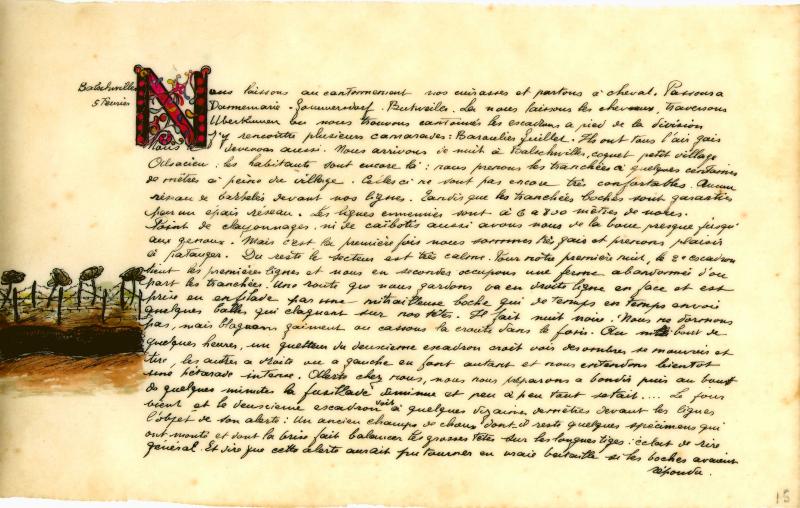 Balschwiller
5 Février
Nous laissons au cantonnement nos cuirasses et partons à cheval. Passons à
Dannemarie - Gommersdorf. Buetwiller. Là nous laissons les chevaux, traversons
Uberkumen où nous trouvons cantonnés les escadrons à pied de la division
J'y rencontre plusieurs camarades: Guillet. Ils ont tous l'air gais
nous le devenons aussi. Nous arrivons de nuit à Balschwiller, coquet petit village
Alsacien: les habitants sont encore là: nous prenons les tranchées à quelques centaines
de mètres à peine du village. Celles ci ne sont pas encore très confortables. Aucun
réseau de barbelés devant nos lignes. Tandis que les tranchées boches sont garanties
par un épais réseau. Les lignes ennemies sont à 6 à 800 mètres de nous.
Point de clayonnages, ni de caïbotis aussi avons nous de la boue presque jusqu'
aux genoux. Mais c'est la première fois nous sommes très gais et prenons plaisir
à patauger. Du reste le secteur est très calme. Pour notre première nuit, le 2e escadron
tient les premières lignes et nous en secondes occupons une ferme abandonnée d'où
part les tranchées. Une route que nous gardons va en droite ligne en face et est
prise en enfilade par une mitrailleuse boche qui de temps en temps envoie
quelques balles qui claquent sur nos têtes. Il fait nuit noire. Nous ne dormons
pas, mais blaguons gaiment ou cassons la croute dans le foin. Au bout de
quelques heures, un guetteur du deuxième escadron croit voir des ombres se mouvoir et
tire, les autres à droite ou à gauche en font autant et nous entendons bientôt
une pétarade intense. Alerte chez nous, nous nous préparons à bondir puis au bout
de quelques minutes la fusillade diminue et peu à peu tout se tait.... Le jour
vient et le deuxième escadron voit à quelques dizaines de mètres devant les lignes
l'objet de son alerte: Un ancien champs de choux dont il reste quelques spécimens qui
ont monté et dont la brise fait balancer les grosses têtes sur les longues tiges: éclat de rire
général. Et dire que cette alerte aurait pu tourner en vraie bataille si les boches avaient
répondu.
15